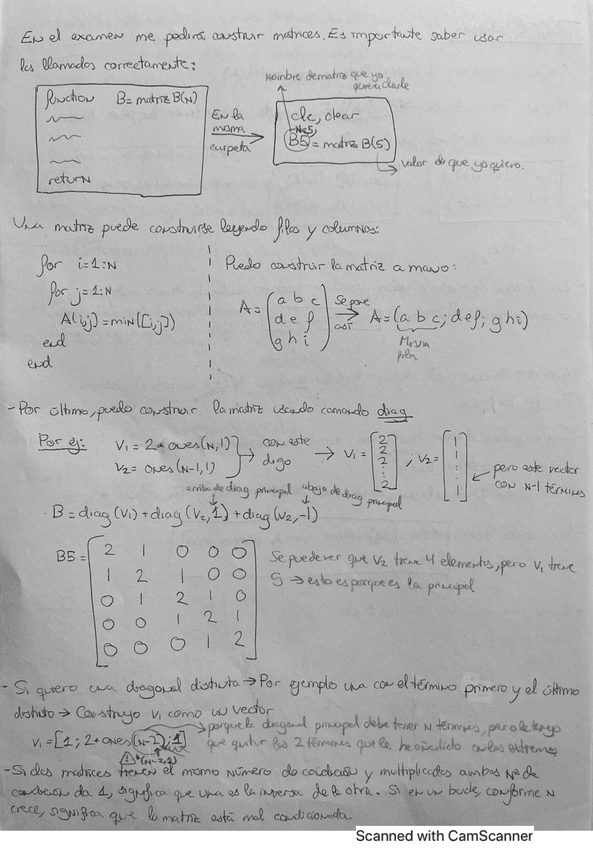 En el examen me pedirán construir matrices. Es importante saber usar
los llamados correctamente:
Nombre de matriz que yo
quiero darle
function B=matrizB(N)
return
En la
misma
carpeta
clc, clear
N=5;
B5=matrizB(5)
valor de que yo quiero.
Una matriz puede construirse leyendo filas y columnas:
for i=1:N
for j=1:N
A(i,j)=min([i,j])
end
end
Puedo construir la matriz a mano:
A=(a b c
d e f
g h i)
Se pone
así
A=(a b c; d e f; g h i)
Misma
fila
- Por último, puedo construir la matriz usando comando diag
Por ej: V1 = 2*ones(N,1)
V2 = ones(N-1,1)
con este
digo
→ V1=[2 2 2 ⋮ 2] ; V2=[1 1 ⋮ 1]
pero este vector
con N-1 términos
arriba de diag principal abajo de diag principal
· B = diag(V1)+diag(V2,1)+diag(V2,-1)
B5=[2 1 0 0 0
1 2 1 0 0
0 1 2 1 0
0 0 1 2 1
0 0 0 1 2]
Se puede ver que V2 tiene 4 elementos, pero V1 tiene
5 → esto es porque es la principal
- Si quiero una diagonal distinta → Por ejemplo una con el término primero y el último
distinto → Construyo V1 como un vector
porque la diagonal principal debe tener N términos, pero le tengo
V1=[1; 2*ones(N-2);1]
que quitar los 2 términos que le he añadido en los extremos
- Si dos matrices tienen el mismo número de condición y multiplicados ambos Nº de
condición da 1, significa que una es la inversa de la otra. Si en un bucle, conforme N
crece, significa que la matriz está mal condicionada
Scanned with CamScanner